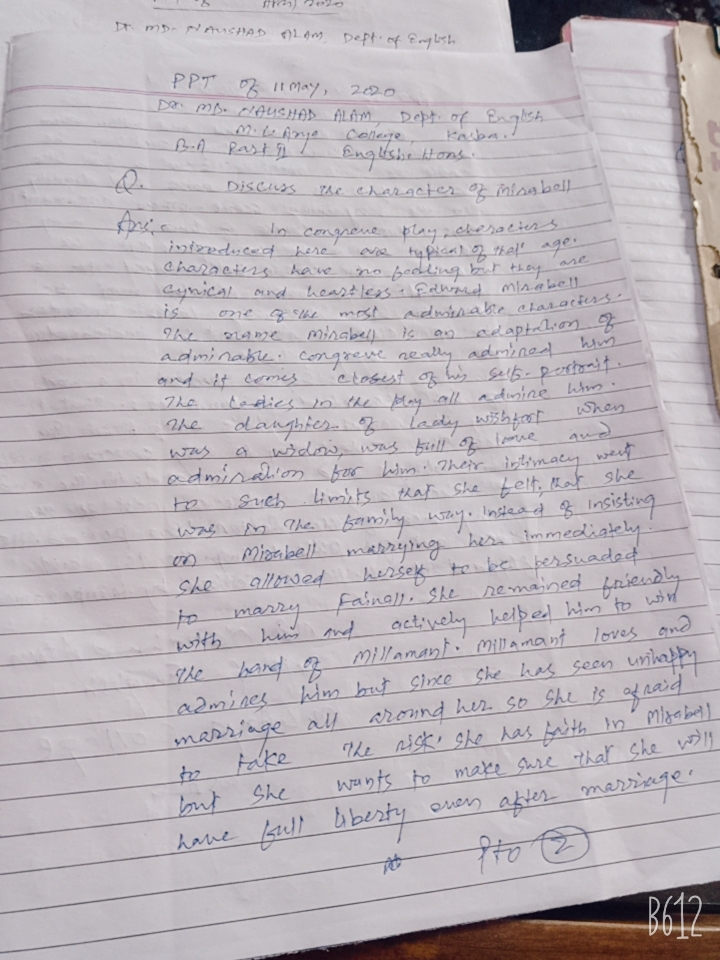 April 2020
Dr. MD. NAUSHAD ALAM, Dept. of English
PPT of 11 May, 2020
Dr. MD. NAUSHAD ALAM, Dept. of English
M. L Arya College, Kasba.
B.A Part II English Hons.
Q. Discuss the character of Mirabell
Ans:- In congreve play, characters
introduced here are typical of that age.
characters have no feeling but they are
cynical and heartless. Edward Mirabell
is one of the most admirable characters.
The name Mirabell is an adaptation of
admirable. congreve really admired him
and it comes closest of his self-portrait.
The ladies in the play all admire him.
The daughter of Lady wishfort when
was a widow, was full of love and
admiration for him. Their intimacy went
to such limits that she felt, that she
was in the family way. Instead of insisting
on Mirabell marrying her immediately.
she allowed herself to be persuaded
to marry Fainall. she remained friendly
with him and actively helped him to win
the hand of Millamant. Millamant loves and
admires him but since she has seen unhappy
marriage all around her so she is afraid
to take the risk. she has faith in Mirabell
but she wants to make sure that she will
have full liberty even after marriage.
Pto 2
B612